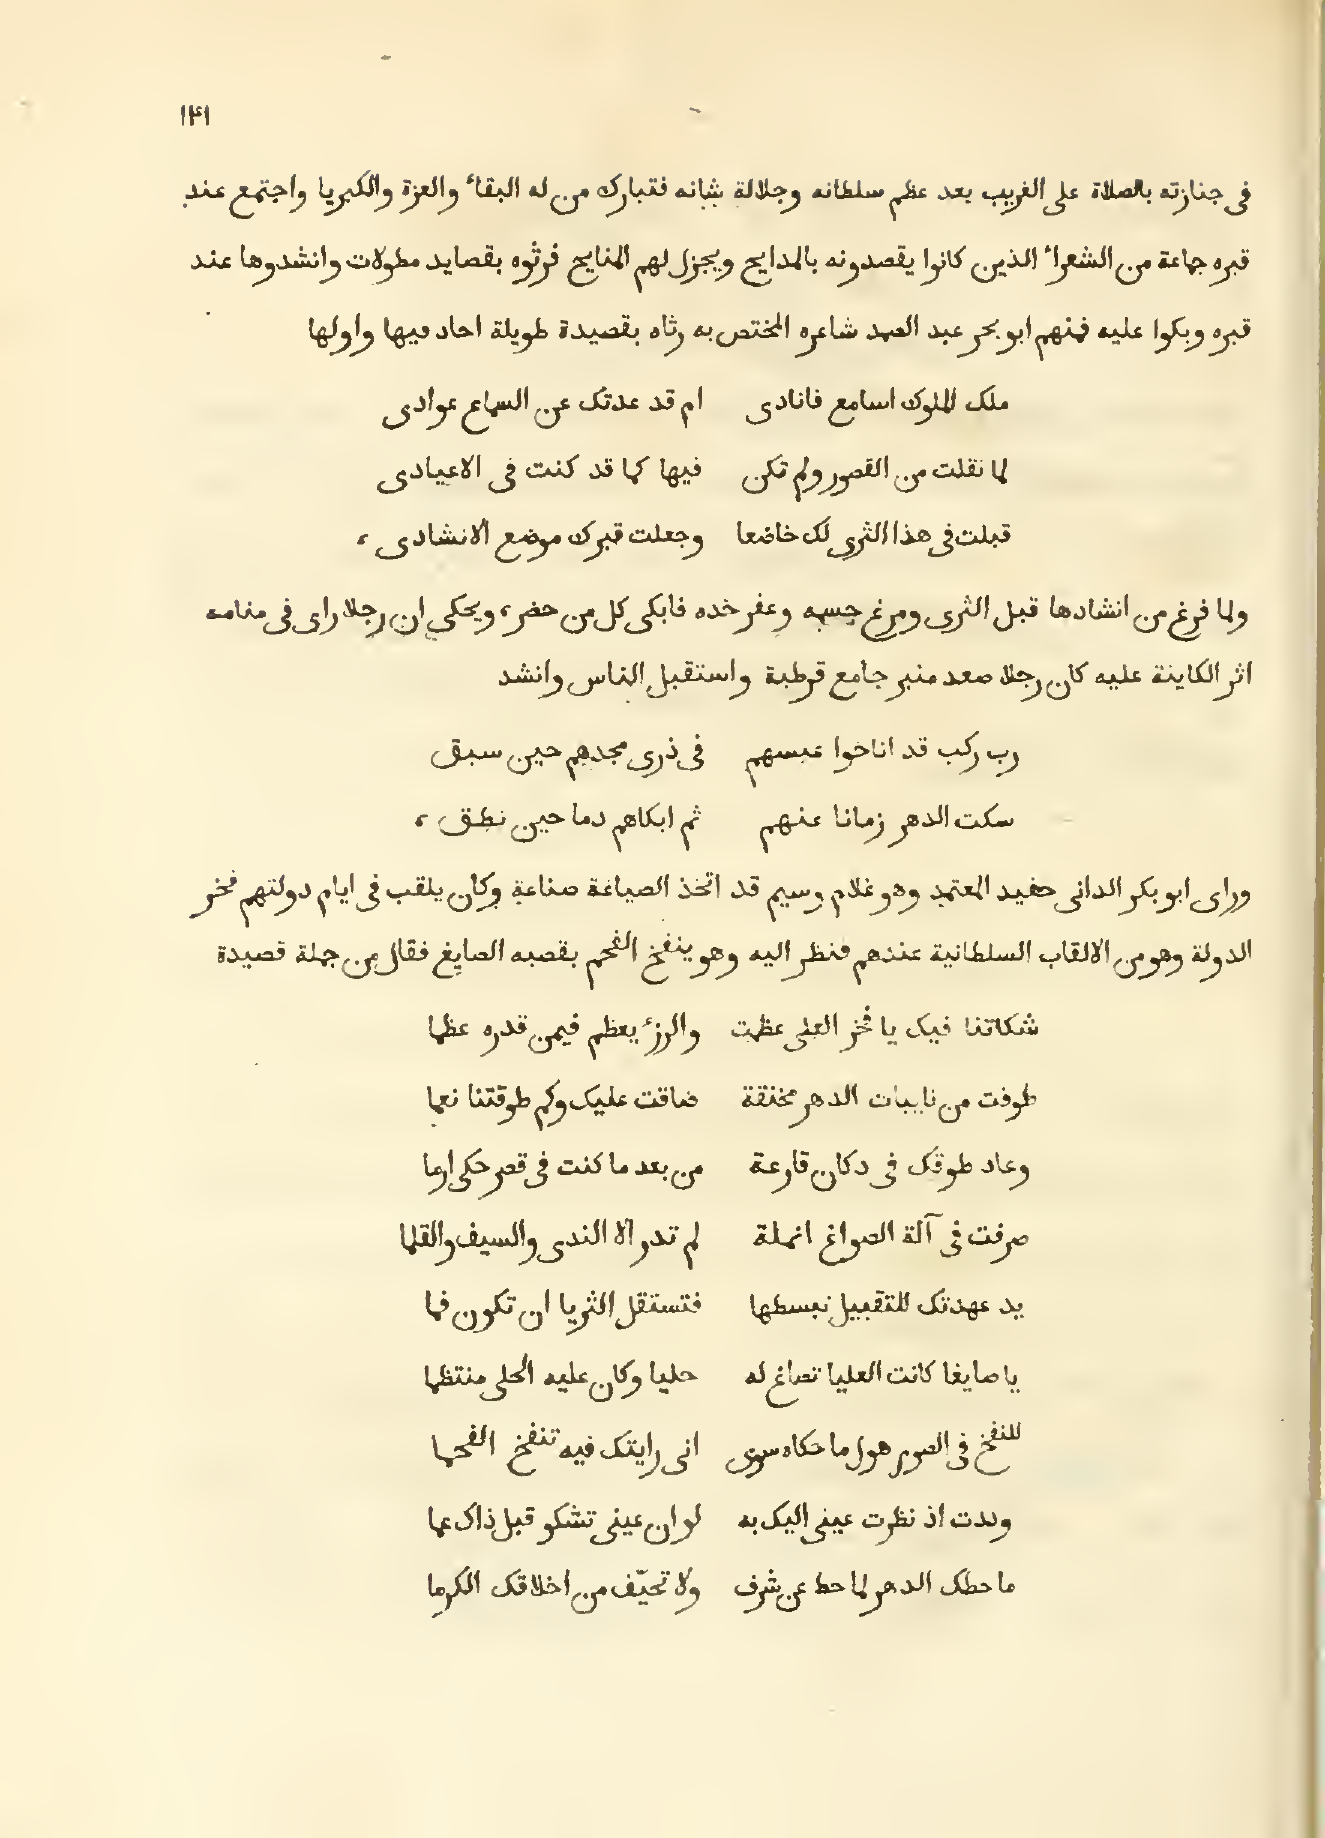 ١٤١
فى جنازته بالصلاة على الغريب بعد عظم سلطانه وجلالة شانه فتبارك من له البقاء والعزة والكبريا واجتمع عند
قبره جماعة من الشعراء الذين كانوا يقصدونه بالمدايح ويجزل لهم المنايح فرثوه بقصايد مطولات وانشدوها عند
قبره وبكوا عليه فمنهم ابو بحر عبد الصمد شاعره المختص به رثاه بقصيدة طويلة اجاد فيها واولها
ملك الملوك اسامع فانادى ام قد عدتك عن السماع عوادى
لما نقلت من القصور ولم تكن فيها كما قد كنت فى الاعيادى
قبلت فى هذا الثرى لك خاضعا وجعلت قبرك موضع الانشادى ،
ولما فرغ من انشادها قبل الثرى ومرغ جسمه وعفر خده فابكى كل من حضر ، ويحكى ان رجلا راى فى منامه
اثر الكاينة عليه كان رجلا صعد منبر جامع قرطبة واستقبل الناس وانشد
رب ركب قد اناخوا عيسهم فى ذرى مجدهم حين سبق
سكت الدهر زمانا عنهم ثم ابكاهم دما حين نطق ،
وراى ابو بكر الدانى حفيد المعتمد وهو غلام وسيم قد اتخذ الصياغة صناعة وكان يلقب فى ايام دولتهم فخر
الدولة وهو من الالقاب السلطانية عندهم فنظر اليه وهو ينفخ الفحم بقصبه الصايغ فقال من جملة قصيدة
شكاتنا فيك يا فخر العلى عظمت والرزء يعظم فيمن قدره عظما
طوقت من نايبات الدهر مخنقة ضاقت عليك وكم طوقتنا نعما
وعاد طوقك فى دكان قارعة من بعد ما كنت فى قصر حكى ارما
صرفت فى آلة الصواغ انملة لم تدر الا الندى والسيف والقلما
يد عهدتك للتقبيل نبسطها فتستقل الثريا ان تكون فما
يا صايغا كانت العليا تصاغ له حليا وكان عليه الحلى منتظما
للنفخ فى الصور هول ما حكاه سوى انى رايتك فيه تنفخ الفحما
وددت اذ نظرت عينى اليك به لو ان عينى تشكو قبل ذاك عما
ما حطك الدهر لما حط عن شرف ولا تحيّف من اخلاقك الكرما